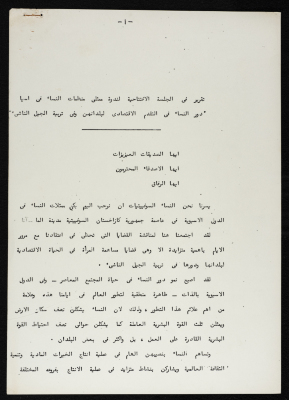 - ١ -
تقرير فى الجلسة الافتتاحية لندوة ممثلى منظمات النساء فى اسيا
"دور النساء فى التقدم الاقتصادى لبلدانهن وفى تربية الجيل الناشىء"
ايتها الصديقات العزيزات
ايها الاصدقاء المحترمون
ايها الرفاق
يسرنا نحن النساء السوفييتيات ان نرحب اليوم بكن ممثلات النساء فى
الدول الاسيوية فى عاصمة جمهورية كازاخستان السوفييتية مدينة الما
لقد اجتمعنا هنا لمناقشة القضايا التى تحظى فى اعتقادنا مع مرور
الايام باهمية متزايدة الا وهى قضايا مساهمة المرأة فى الحياة الاقتصادية
لبلدانها ودورها فى تربية الجيل الناشىء .
لقد اصبح نمو دور النساء فى حياة المجتمع المعاصر - وفى الدول
الاسيوية بالذات - ظاهرة منطقية لتطور العالم فى ايامنا هذه وعلامة
من اهم علائم هذا التطور ، وذلك لان النساء يشكلن نصف سكان الارض
ويمثلن ثلث القوة البشرية العاملة كما يشكلن حوالى نصف احتياط القوة
البشرية القادرة على العمل ، بل واكثر فى بعض البلدان .
وتساهم النساء بنصيبهن الهام فى عملية انتاج الخيرات المادية وتنمية
الثقافة العالمية ويشاركن بنشاط متزايد فى عملية الانتاج بفروعه المختلفة